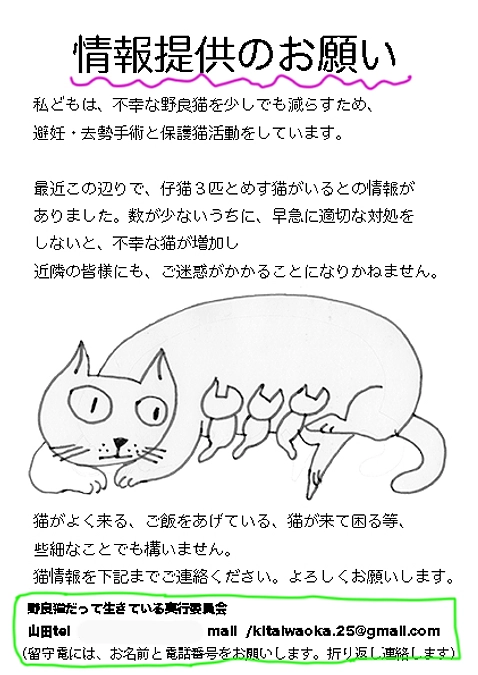 情報提供のお願い
私どもは、不幸な野良猫を少しでも減らすため、
避妊・去勢手術と保護猫活動をしています。
最近この辺りで、仔猫３匹とめす猫がいるとの情報が
ありました。数が少ないうちに、早急に適切な対処を
しないと、不幸な猫が増加し
近隣の皆様にも、ご迷惑がかかることになりかねません。
猫がよく来る、ご飯をあげている、猫が来て困る等、
些細なことでも構いません。
猫情報を下記までご連絡ください。よろしくお願いします。
野良猫だって生きている実行委員会
山田tel mail /kitaiwaoka.25@gmail.com
（留守電には、お名前と電話番号をお願いします。折り返し連絡します）